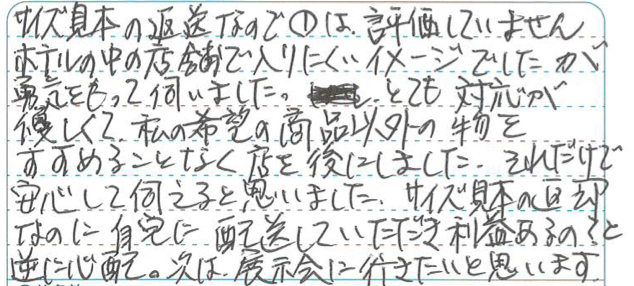 サイズ見本の返送なので①は、評価していません
ホテルの中の店舗で入りにくいイメージでしたが
勇気をもって伺いました。とても対応が
優しくて、私の希望の商品以外の物を
すすめることなく店を後にしました。それだけで
安心して伺えると思いました。サイズ見本の返却
なのに自宅に配送していただき利益あるの?と
逆に心配。次は、展示会に行きたいと思います